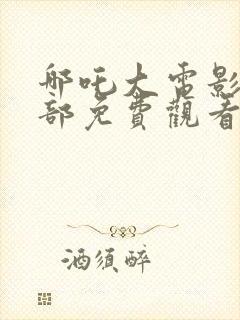 哪吒大電影
部免費觀看
酒須醉